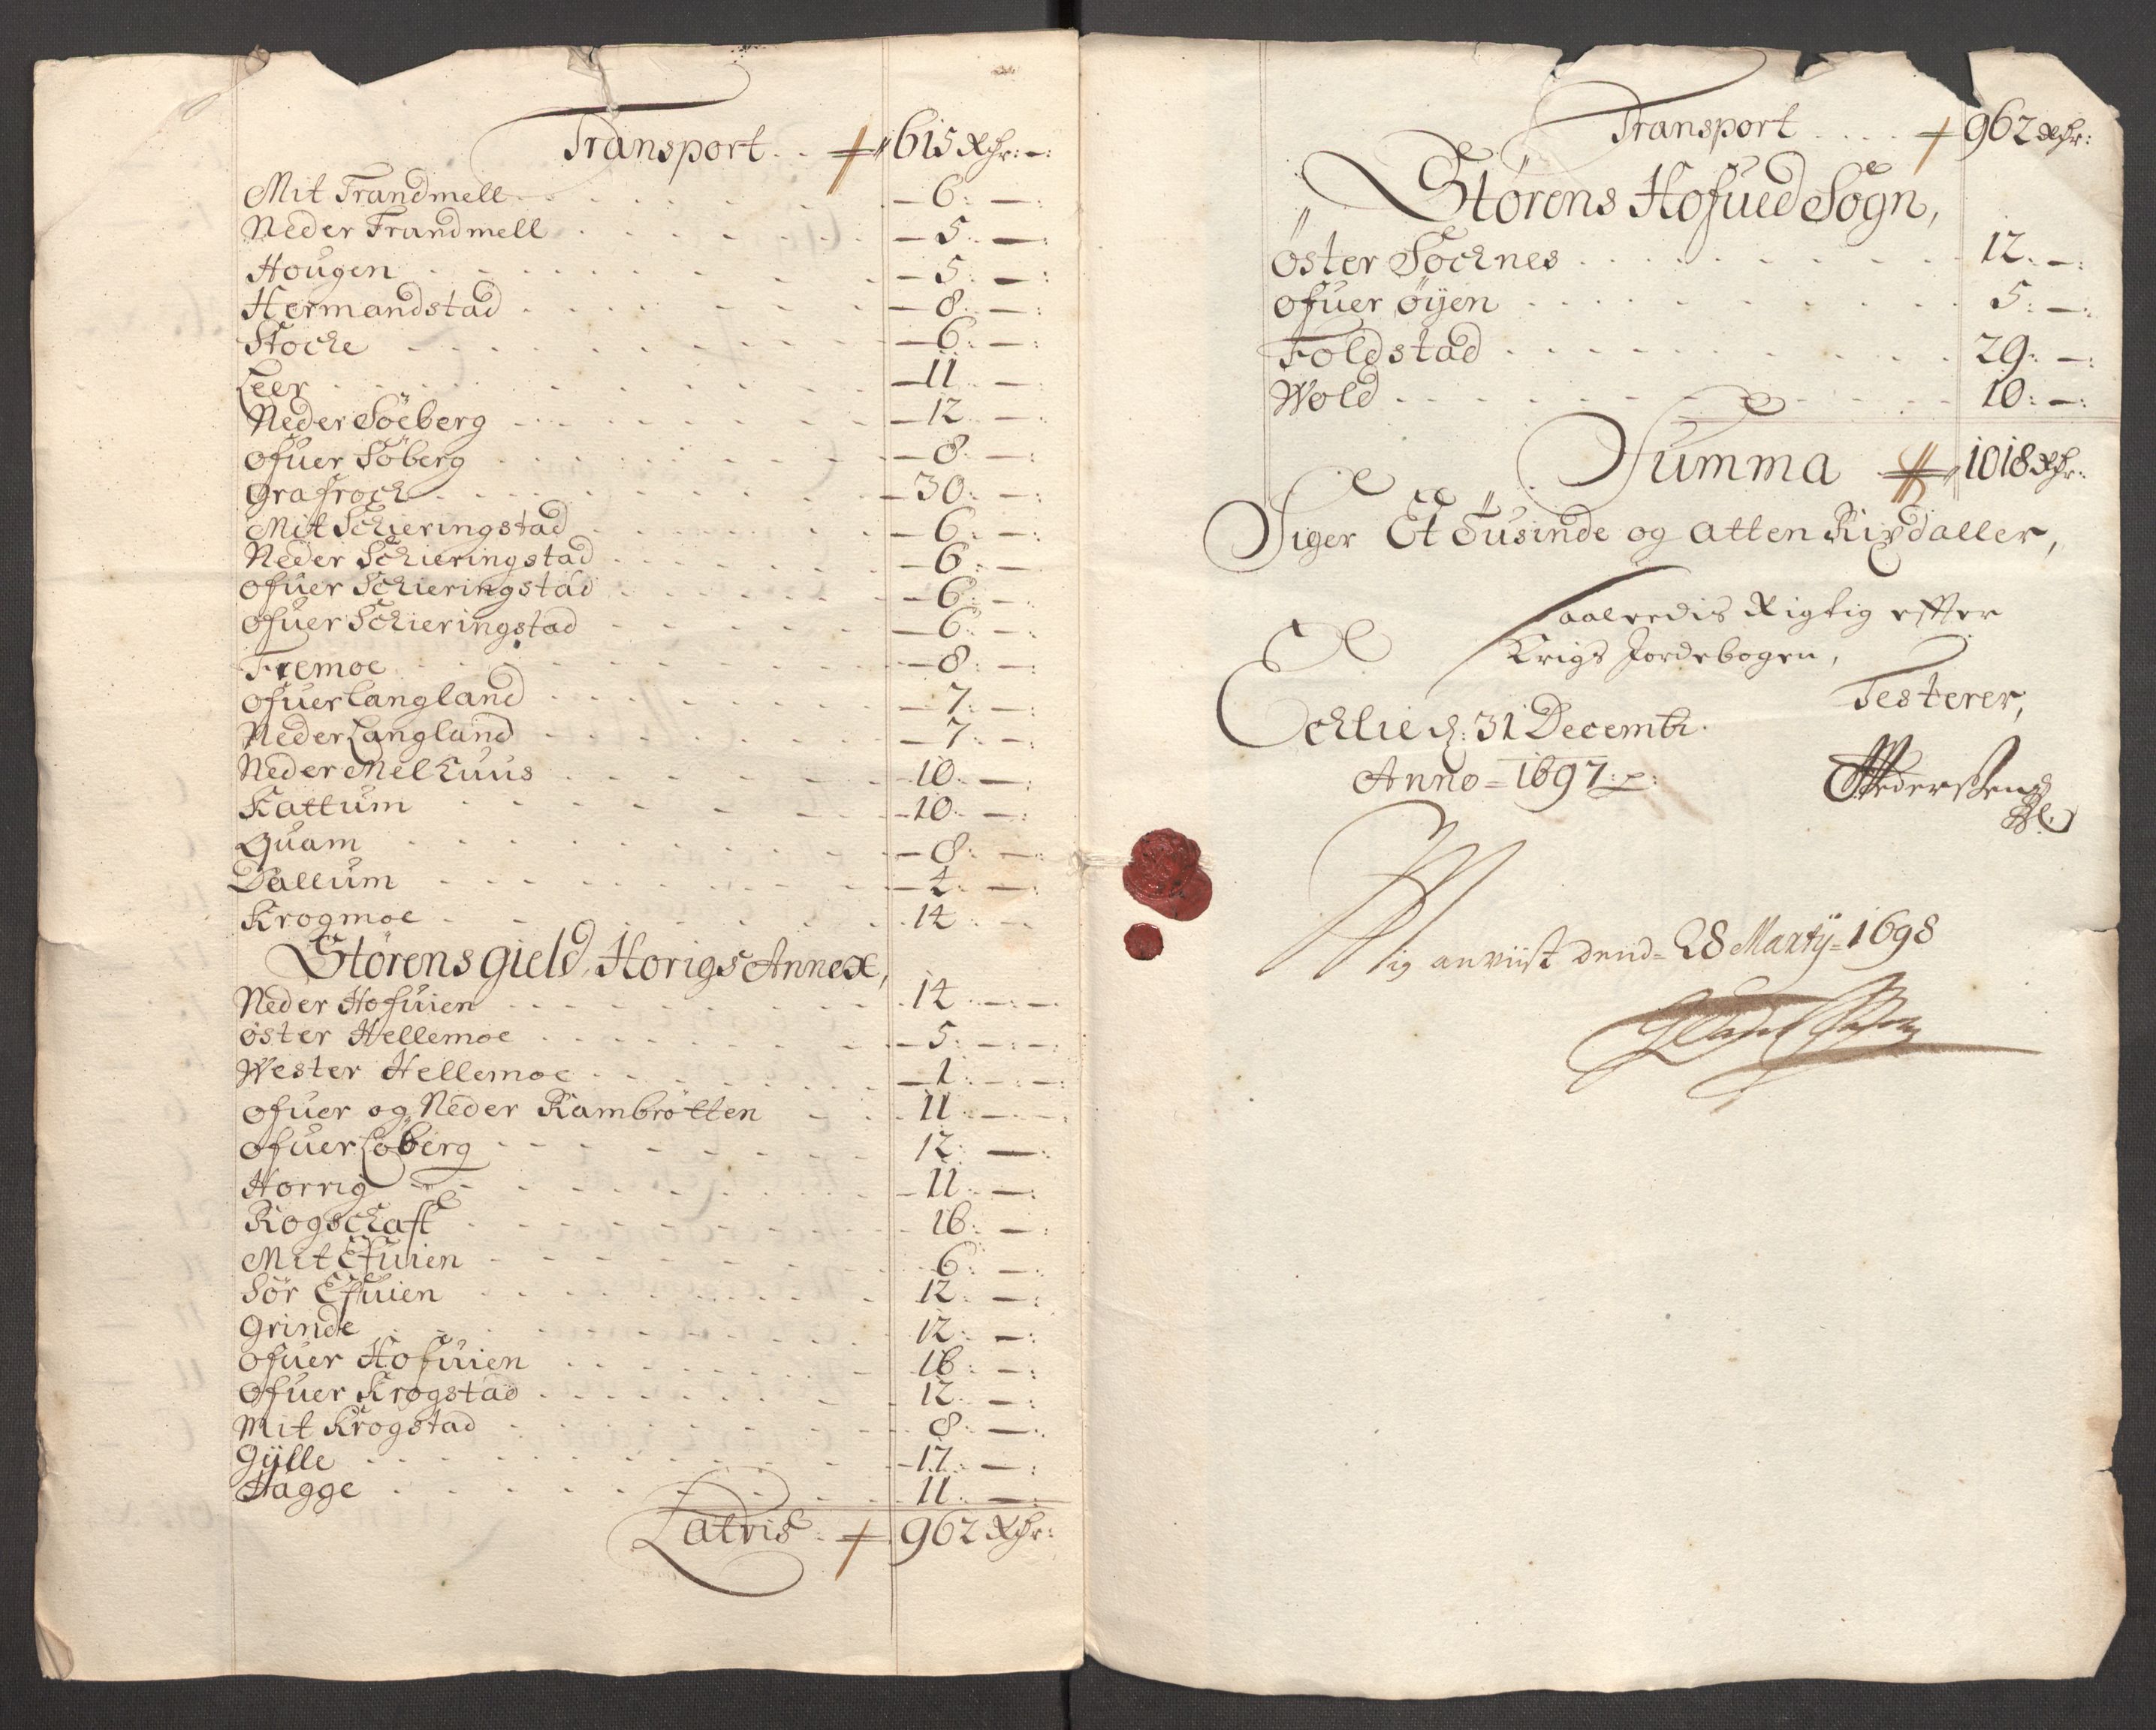 Transport . . 615 Rdr: -:
Mit Trandmell . . 6: -:
Neder Trandmell . . 5: -:
Hougen . . 5: -:
Hermandstad . . 8: -:
Stoche . . 6: -:
Leer . . 11: -:
Neder Söeberg . . 12: -:
Ofuer Söberg . . 8: -:
Grafroch . . 30: -:
Mit Schieringstad . . 6: -:
Neder Schieringstad . . 6: -:
Ofuer Schieringstad . . 6: -:
Ofuer Schieringstad . . 6: -:
Fremoe . . 8: -:
Ofuer Langland . . 7: -:
Neder Langland . . 7: -:
Neder Melhuus . . 10: -:
Kattum . . 10: -:
Quam . . 8: -:
Dallum . . 4: -:
Krogmoe . . 14: -:
Störens gield, Horigs Annex,
Neder Hofuien . . 14: -:
öster Hellemoe . . 5: -:
Wester Hellemoe . . 1: -:
Ofuer og Neder Rambrötten . . 11: -:
Ofuer Löberg . . 12: -:
Horrig . . 11: -:
Rogschaft . . 16: -:
Mit Efuien . . 6: -:
Sör Efuien . . 12: -:
Grinde . . 12: -:
Ofuer Hofuien . . 16: -:
Ofuer Krogstad . . 12: -:
Mit Krogstad . . 8: -:
Gÿlle . . 17: -:
Hagge . . 11: -:
Latris . 962 Rdr:
Transport . . . . 962 Rdr:
Störens Hofued Sogn,
öster Sochnes . . 12: -:
Ofuer öÿen . . 5: -:
Foldstad . . 29: -:
Wold . . 10: -:
Summa 1018 Rdr:
Siger Et Tusinde og Atten Rixdaller,
Saaledis Rigtig efter
Krigs Jordebogen,
Testerer,
Echlie d: 31 Decembr.
Anno = 1697:
Pederssen
Mig anviist dend = 28 Martÿ = 1698